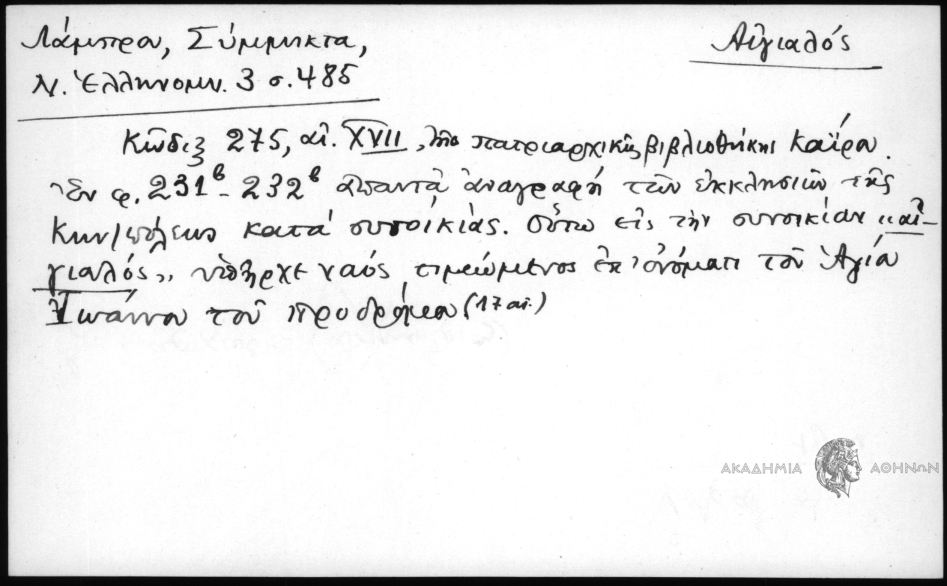 Λάμπρου, Σύμμικτα,
Ν. Ἑλληνομν. 3 σ. 485
Αἰγιαλός
Κῶδιξ 275, αἰ. XVII, τῆς πατριαρχικῆς βιβλιοθήκης Καΐρου.
Ἐν φ. 231β - 232β ἀπαντᾶ ἀναγραφή τῶν ἐκκλησιῶν τῆς
Κων/πόλεως κατά συνοικίας. Οὕτω εἰς τήν συνοικίαν "αἰ-
γιαλός", ὑπῆρχε ναός τιμώμενος ἐπ' ὀνόματι τοῦ Ἁγίου
Ἰωάννου τοῦ Προδρόμου (17 αἰ.)
ΑΚΑΔΗΜΙΑ ΑΘΗΝΩΝ